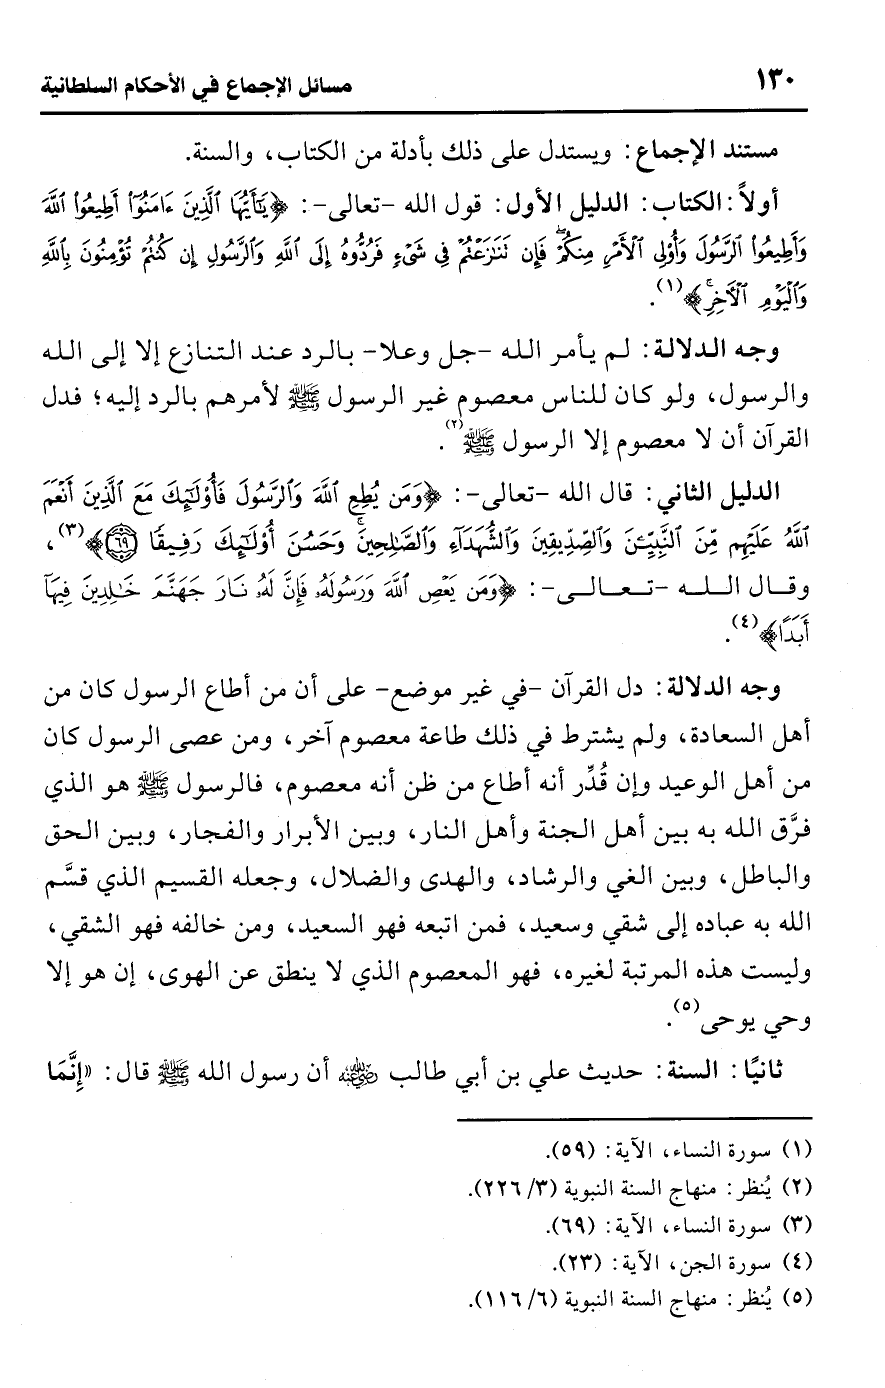 ١٣٠ مسائل الإجماع في الأحكام السلطانية
مستند الإجماع: ويستدل على ذلك بأدلة من الكتاب، والسنة.
أولاً: الكتاب: الدليل الأول: قول الله -تعالى-: ﴿يَٰٓأَيُّهَا ٱلَّذِينَ ءَامَنُوٓاْ أَطِيعُواْ ٱللَّهَ
وَأَطِيعُواْ ٱلرَّسُولَ وَأُوْلِى ٱلْأَمْرِ مِنكُمْ ۖ فَإِن تَنَٰزَعْتُمْ فِى شَىْءٍ فَرُدُّوهُ إِلَى ٱللَّهِ وَٱلرَّسُولِ إِن كُنتُمْ تُؤْمِنُونَ بِٱللَّهِ
وَٱلْيَوْمِ ٱلْأٓخِرِ ۚ﴾(١).
وجه الدلالة: لم يأمر الله -جل وعلا- بالرد عند التنازع إلا إلى الله
والرسول، ولو كان للناس معصوم غير الرسول ﷺ لأمرهم بالرد إليه؛ فدل
القرآن أن لا معصوم إلا الرسول ﷺ(٢).
الدليل الثاني: قال الله -تعالى-: ﴿وَمَن يُطِعِ ٱللَّهَ وَٱلرَّسُولَ فَأُوْلَٰٓئِكَ مَعَ ٱلَّذِينَ أَنْعَمَ
ٱللَّهُ عَلَيْهِم مِّنَ ٱلنَّبِيِّـۧنَ وَٱلصِّدِّيقِينَ وَٱلشُّهَدَآءِ وَٱلصَّٰلِحِينَ ۚ وَحَسُنَ أُوْلَٰٓئِكَ رَفِيقًا ٦٩﴾(٣)،
وقال الله -تعالى-: ﴿وَمَن يَعْصِ ٱللَّهَ وَرَسُولَهُۥ فَإِنَّ لَهُۥ نَارَ جَهَنَّمَ خَٰلِدِينَ فِيهَآ
أَبَدًا﴾(٤).
وجه الدلالة: دل القرآن -في غير موضع- على أن من أطاع الرسول كان من
أهل السعادة، ولم يشترط في ذلك طاعة معصوم آخر، ومن عصى الرسول كان
من أهل الوعيد وإن قُدِّر أنه أطاع من ظن أنه معصوم، فالرسول ﷺ هو الذي
فرَّق الله به بين أهل الجنة وأهل النار، وبين الأبرار والفجار، وبين الحق
والباطل، وبين الغي والرشاد، والهدى والضلال، وجعله القسيم الذي قسَّم
الله به عباده إلى شقي وسعيد، فمن اتبعه فهو السعيد، ومن خالفه فهو الشقي،
وليست هذه المرتبة لغيره، فهو المعصوم الذي لا ينطق عن الهوى، إن هو إلا
وحي يوحى(٥).
ثانيًا: السنة: حديث علي بن أبي طالب رضي الله عنه أن رسول الله ﷺ قال: «إِنَّمَا
(١) سورة النساء، الآية: (٥٩).
(٢) يُنظر: منهاج السنة النبوية (٣/ ٢٢٦).
(٣) سورة النساء، الآية: (٦٩).
(٤) سورة الجن، الآية: (٢٣).
(٥) يُنظر: منهاج السنة النبوية (٦/ ١١٦).